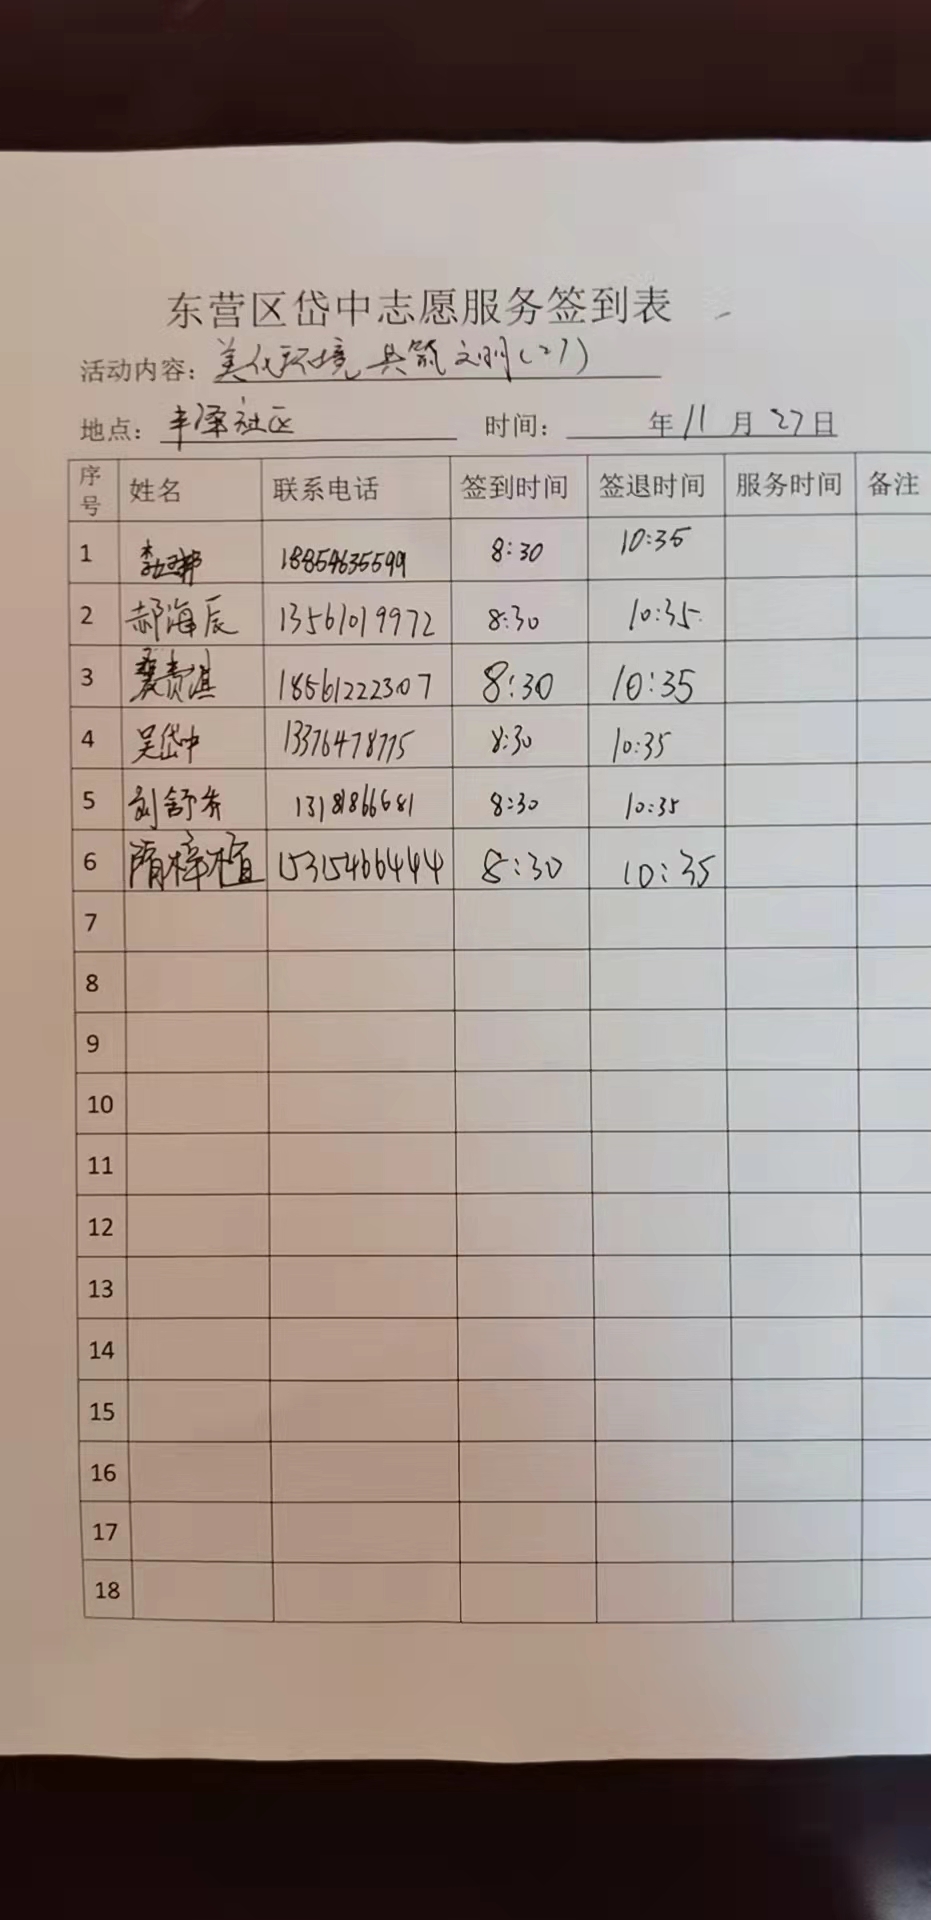 东营区岱中志愿服务签到表
活动内容：美化环境 共筑文明(27)
地点：丰泽社区 时间： 年11月27日
序号 姓名 联系电话 签到时间 签退时间 服务时间 备注
1 18854635599 8:30 10:35
2 郝海辰 13561019972 8:30 10:35
3 18561222307 8:30 10:35
4 吴岱中 13376478775 8:30 10:35
5 刘舒 13181866681 8:30 10:35
6 隋梓植 15315466444 8:30 10:35
7
8
9
10
11
12
13
14
15
16
17
18